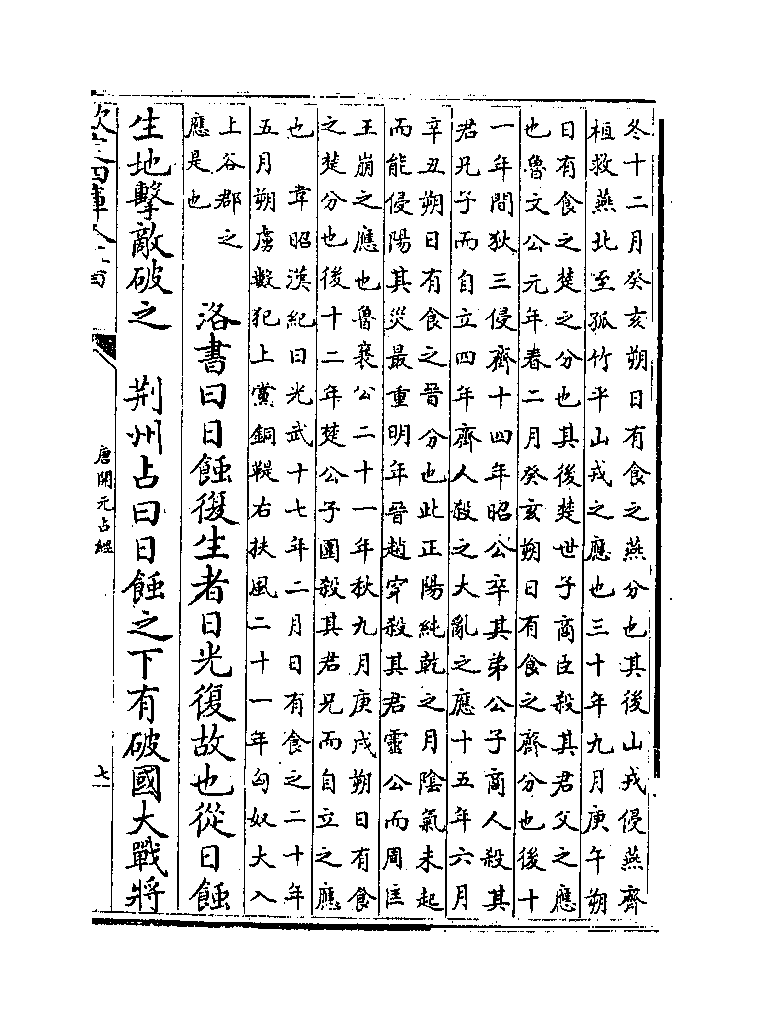 冬十二月癸亥朔日有食之燕分也其後山戎侵燕齊
桓救燕北至孤竹平山戎之應也三十年九月庚午朔
日有食之楚之分也其後楚世子商臣殺其君父之應
也魯文公元年春二月癸亥朔日有食之齊分也後十
一年間狄三侵齊十四年昭公卒其弟公子商人殺其
君兄子而自立四年齊人殺之大亂之應十五年六月
辛丑朔日有食之晉分也此正陽純乾之月陰氣未起
而能侵陽其災最重明年晉趙穿殺其君靈公而周匡
王崩之應也魯襄公二十一年秋九月庚戌朔日有食
之楚分也後十二年楚公子圍殺其君兄而自立之應
也　韋昭漢紀曰光武十七年二月日有食之二十年
五月朔虜數犯上黨銅鞮右扶風二十一年匈奴大入
上谷郡之
應是也
洛書曰日蝕復生者日光復故也從日蝕
生地擊敵破之　荆州占曰日蝕之下有破國大戰將
欽定四庫全書
唐開元占經
七